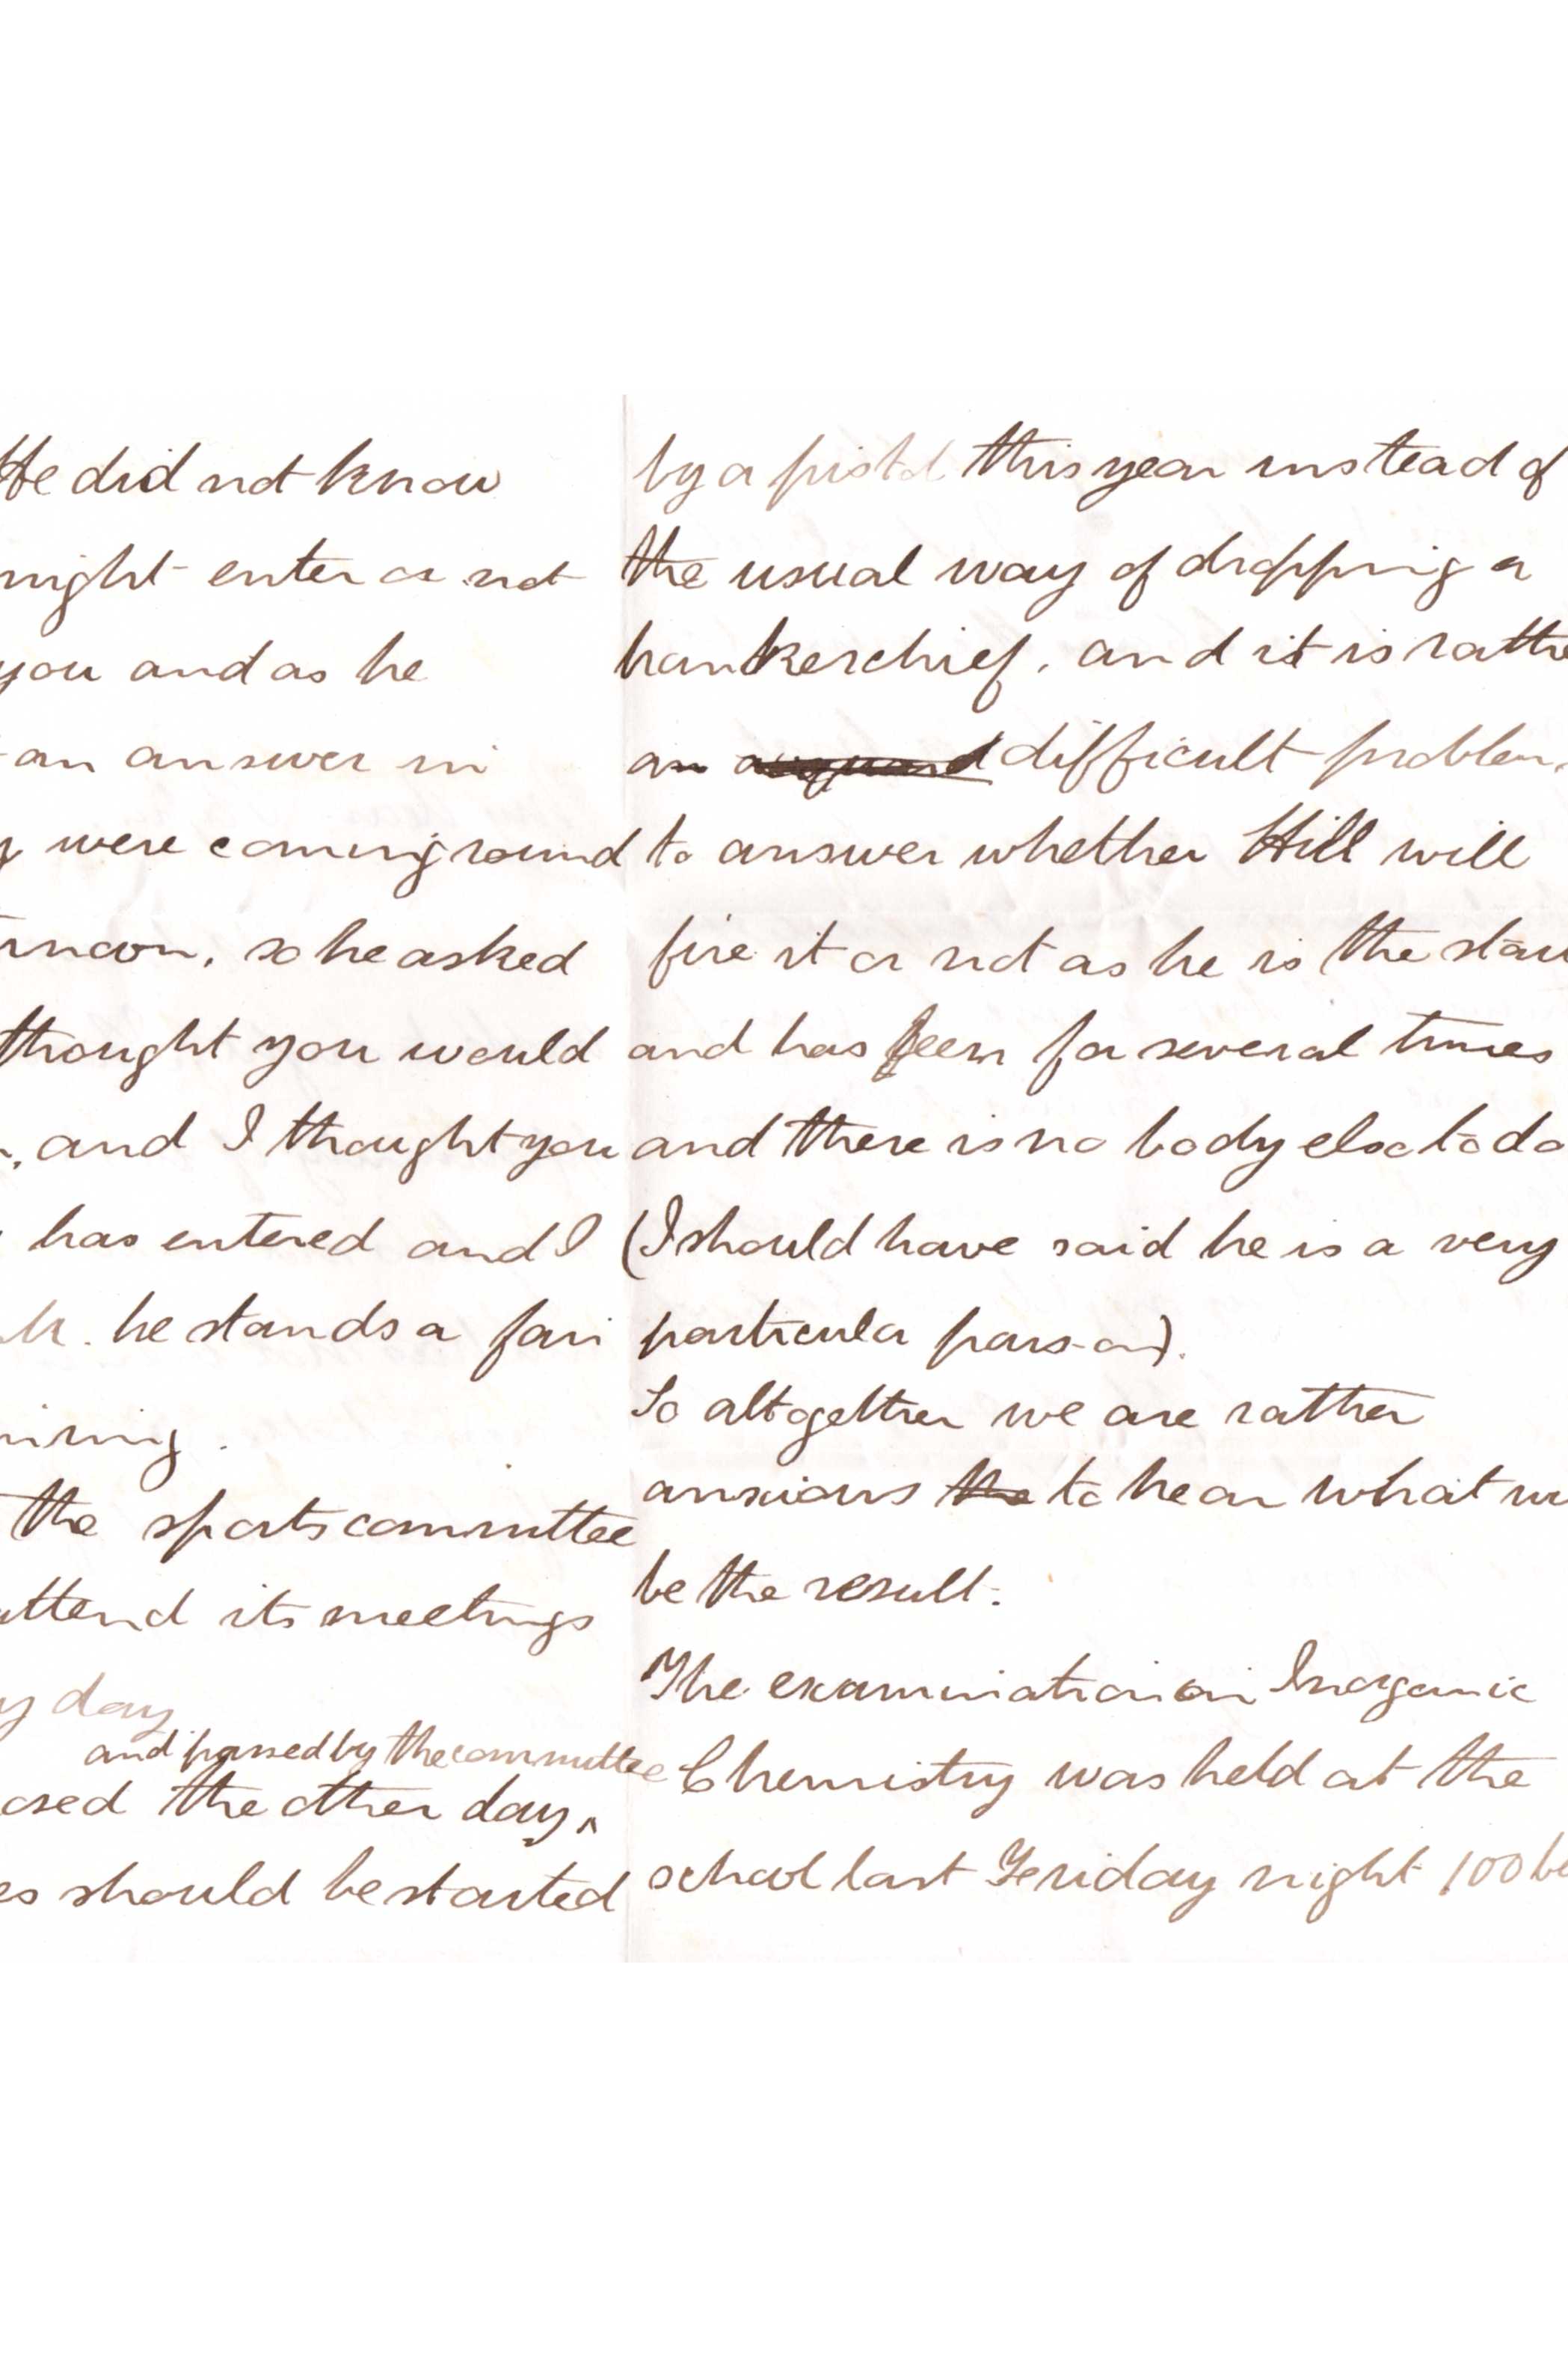 He did not know
might enter or not
you and as he
an answer in
were coming round
so he asked
thought you would
, and I thought you
has entered and I
he stands a fair
the sports committee
attend its meetings
day
and passed by the committee
the other day, ^
should be started
by a pistol this year instead of
the usual way of dropping a
hankerchief, and it is rathe
an difficult problem
to answer whether Hill will
fire it or not as he is the star
and has been for several times
and there is no body else to do
(I should have said he is a very
particular parson).
So altogether we are rather
anxious the to hear what w
be the result.
The examination on Inorganic
Chemistry was held at the
school last Feriday night 100 be